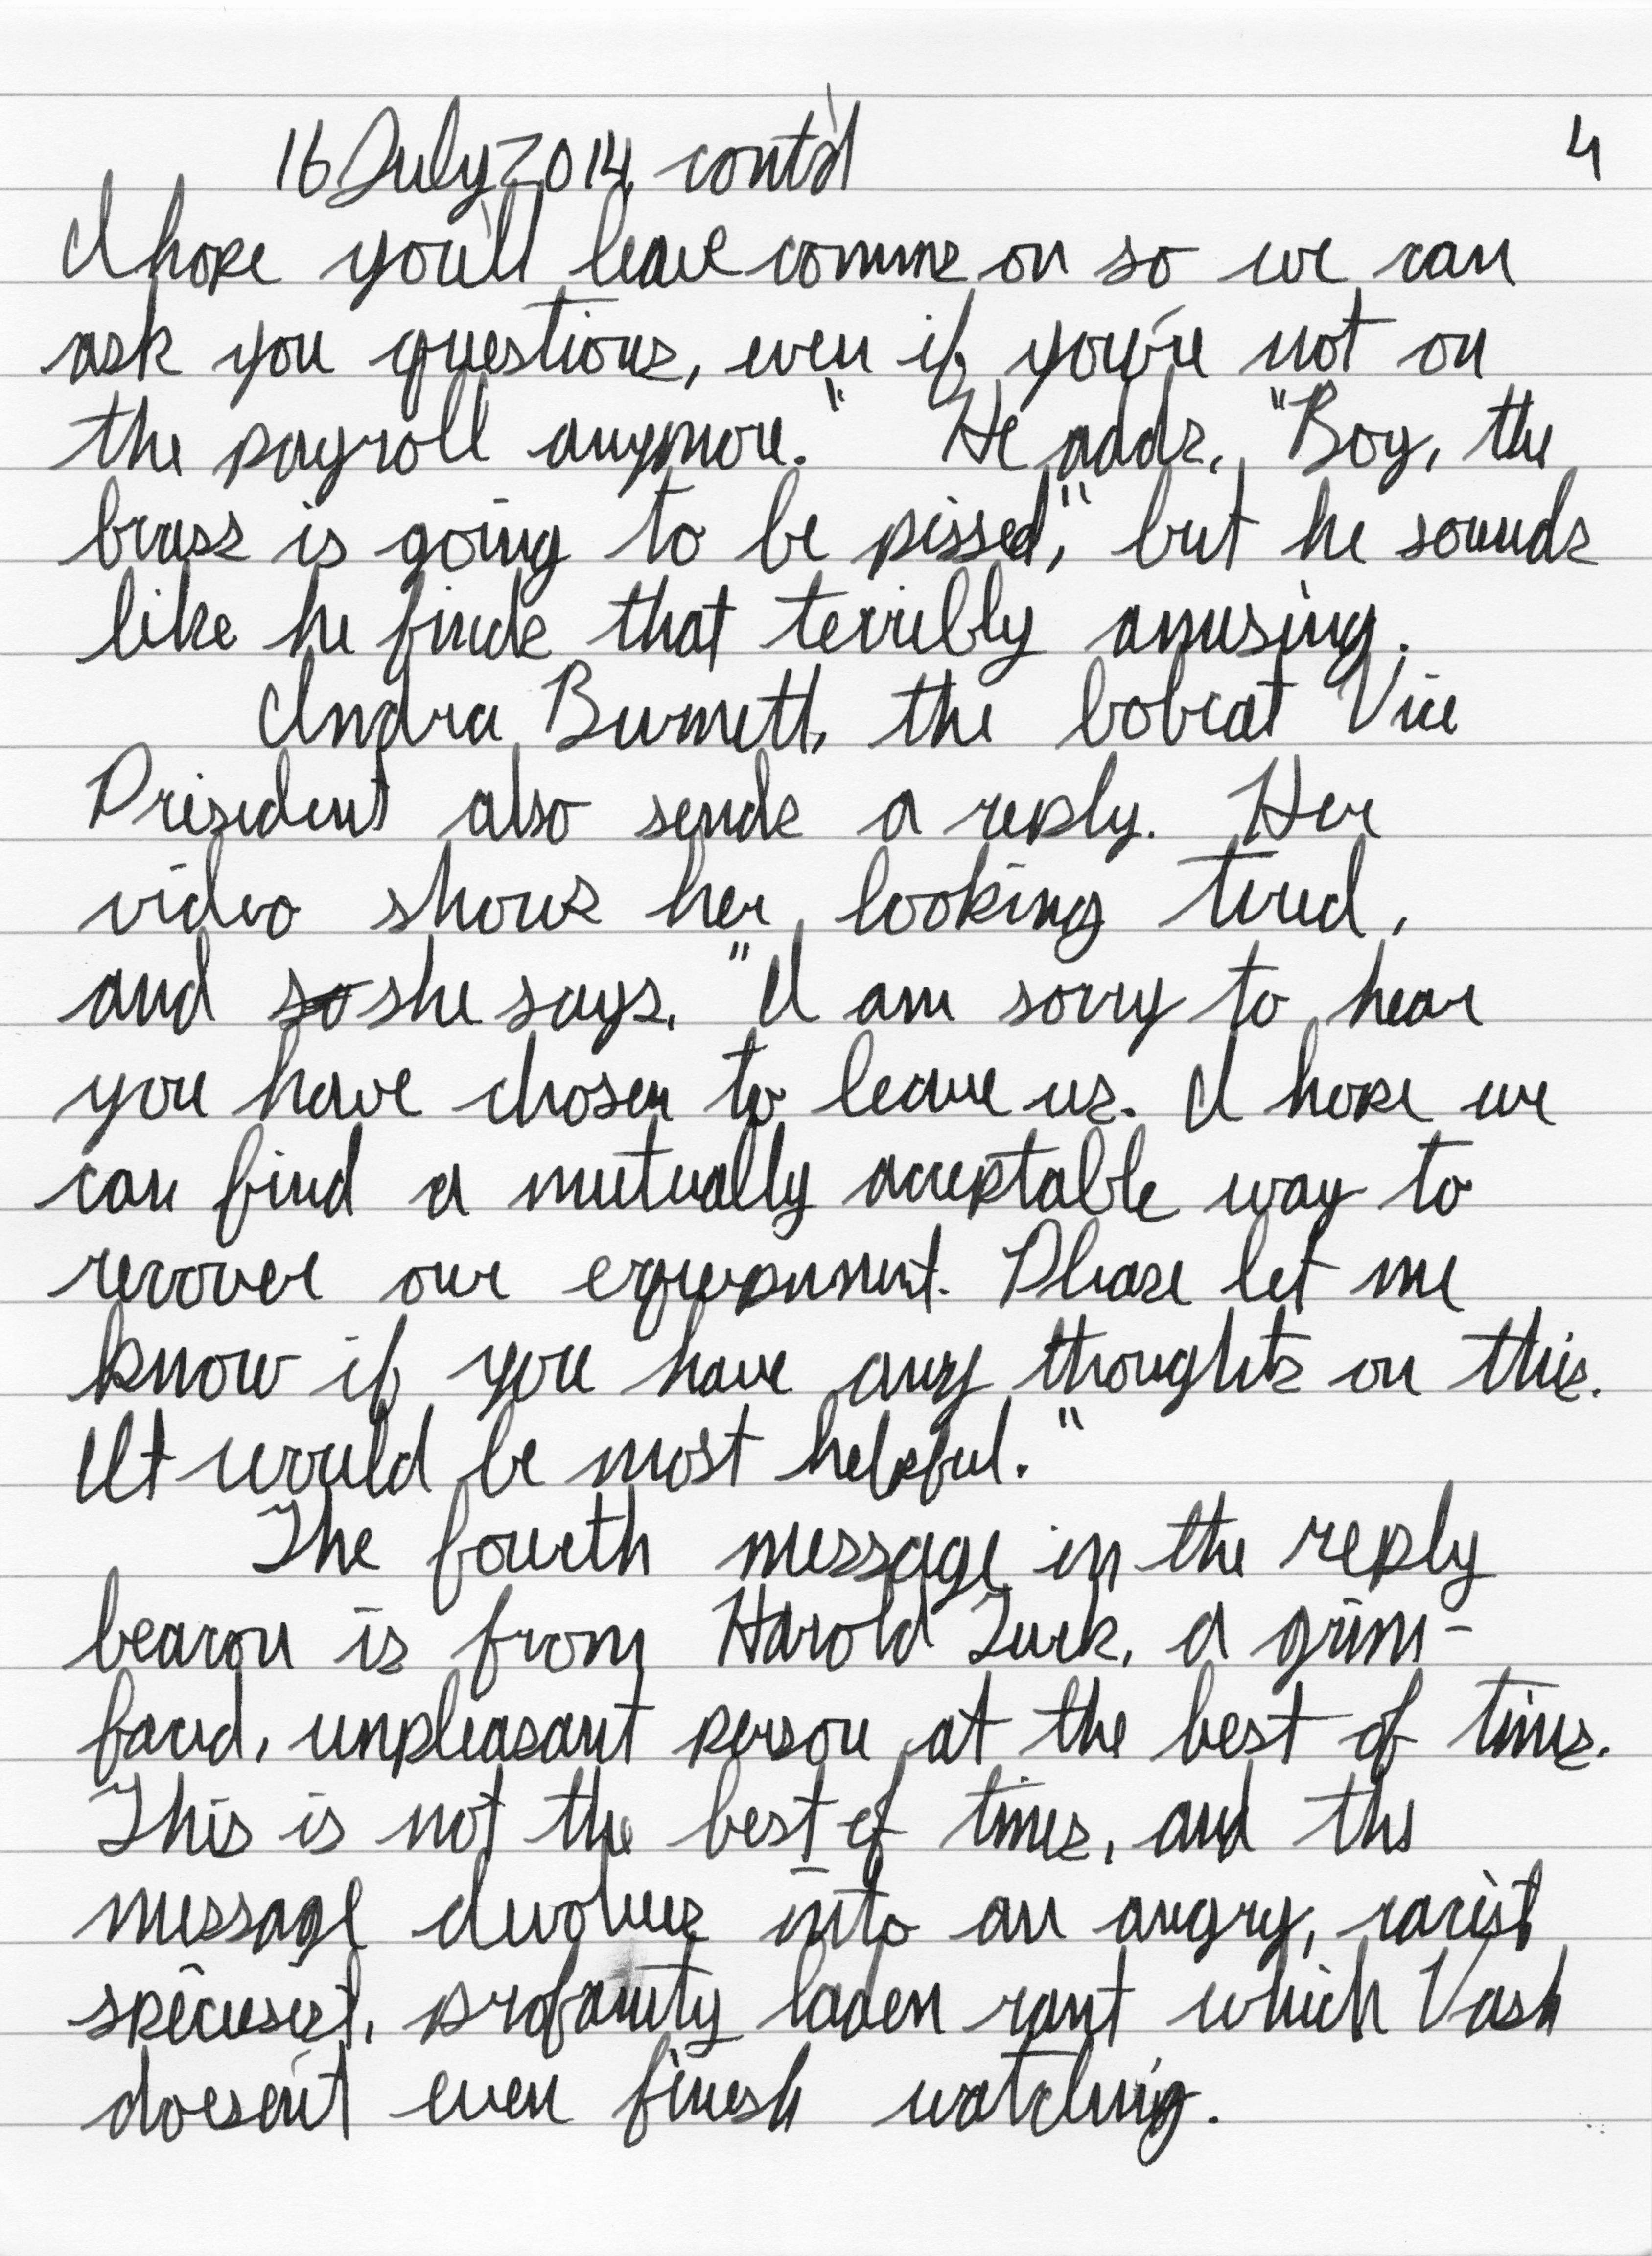 16 July 2014 cont'd 4
I hope you'll leave comms on so we can
ask you questions, even if you're not on
the payroll anymore." He adds, "Boy, the
brass is going to be pissed," but he sounds
like he finds that terribly amusing.
Indra Burnett, the bobcat Vice
President also sends a reply. Her
video shows her looking tired,
and so she says, "I am sorry to hear
you have chosen to leave us. I hope we
can find a mutually acceptable way to
recover our equipment. Please let me
know if you have any thoughts on this.
It would be most helpful."
The fourth message in the reply
beacon is from Harold Turk, a grim-
faced, unpleasant person at the best of times.
This is not the best of times, and the
message devolves into an angry, racist
speciesist, profanity laden rant which Vash
doesn't even finish watching.